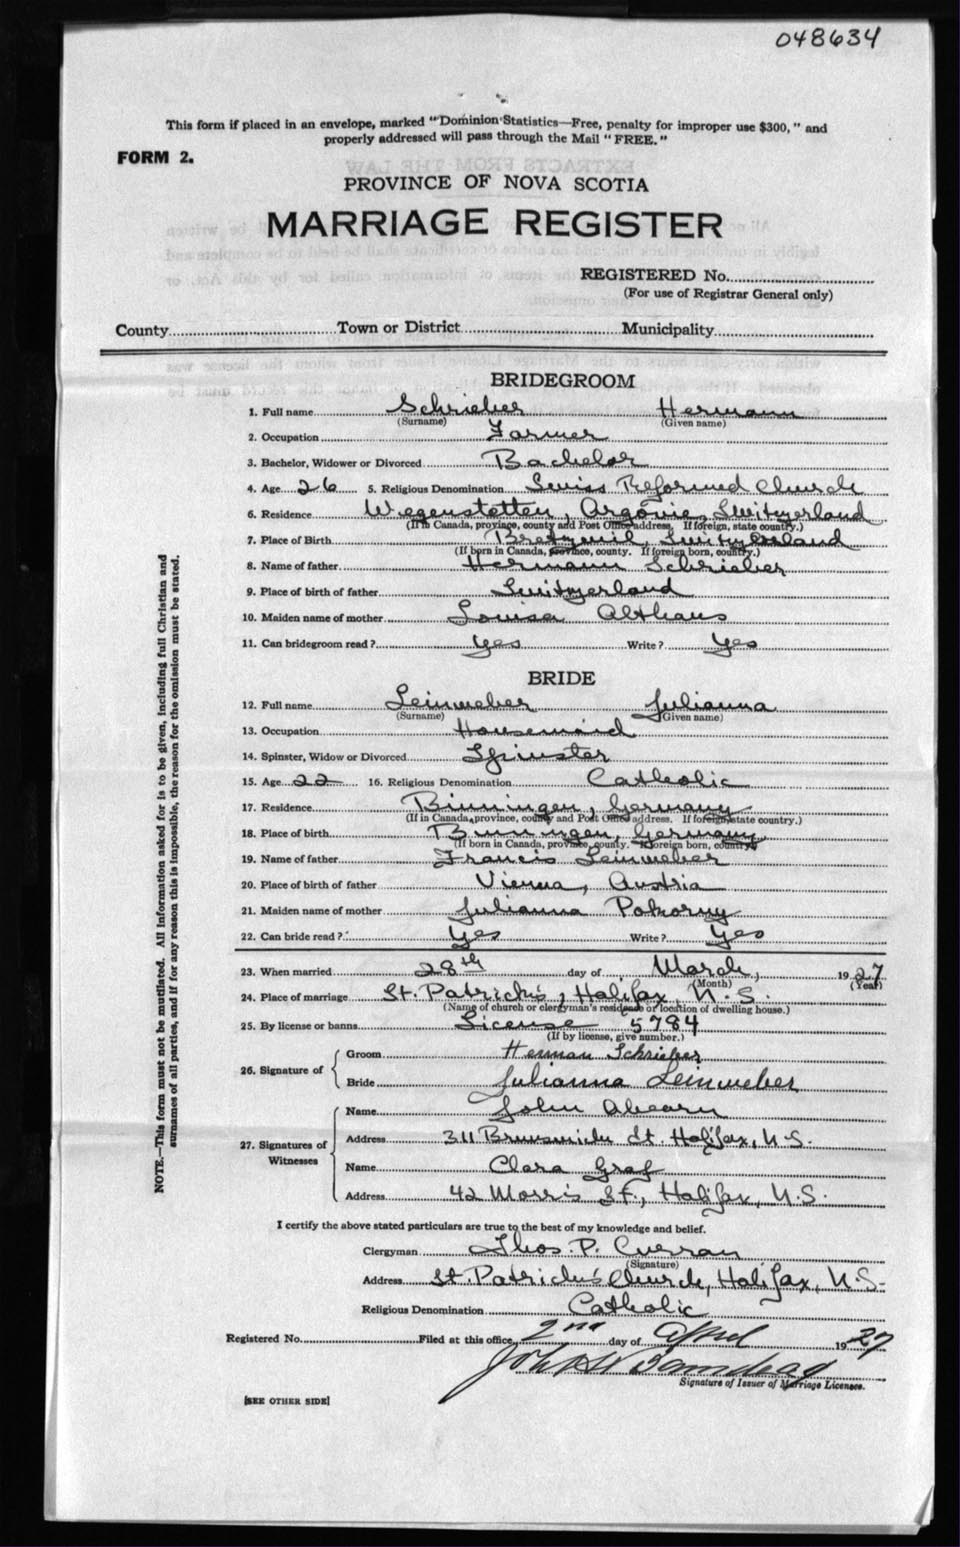 048634
This form if placed in an envelope, marked "Dominion Statistics—Free, penalty for improper use $300," and
properly addressed will pass through the Mail "FREE."
FORM 2.
EXTRACTS FROM THE LAW
PROVINCE OF NOVA SCOTIA
MARRIAGE REGISTER
REGISTERED No.
(For use of Registrar General only)
County Town or District Municipality
BRIDEGROOM
1. Full name Schrieber Hermann
(Surname) (Given name)
2. Occupation Farmer
3. Bachelor, Widower or Divorced Bachelor
4. Age 26 5. Religious Denomination Swiss Reformed Church
6. Residence Wegenstetten, Argovie, Switzerland
(If in Canada, province, county and Post Office address. If foreign, state country.)
7. Place of Birth Bretzwil, Switzerland
(If born in Canada, province, county. If foreign born, country.)
8. Name of father Hermann Schrieber
9. Place of birth of father Switzerland
10. Maiden name of mother Louisa Althaus
11. Can bridegroom read? Yes Write? Yes
BRIDE
12. Full name Leinweber Julianna
(Surname) (Given name)
13. Occupation Housemaid
14. Spinster, Widow or Divorced Spinster
15. Age 22 16. Religious Denomination Catholic
17. Residence Binningen, Germany
(If in Canada, province, county and Post Office address. If foreign, state country.)
18. Place of birth Binningen, Germany
(If born in Canada, province, county. If foreign born, country)
19. Name of father Francis Leinweber
20. Place of birth of father Vienna, Austria
21. Maiden name of mother Julianna Pokorny
22. Can bride read? Yes Write? Yes
23. When married 28th day of March, 1927
(Month) (Year)
24. Place of marriage St. Patrick's, Halifax, N.S.
(Name of church or clergyman's residence or location of dwelling house.)
25. By license or banns License 5784
(If by license, give number.)
26. Signature of
Groom Herman Schrieber
Bride Julianna Leinweber
27. Signatures of Witnesses
Name John Ahearn
Address 311 Brunswick St. Halifax, N.S.
Name Clara Graf
Address 42 Morris St., Halifax, N.S.
I certify the above stated particulars are true to the best of my knowledge and belief.
Clergyman Thos. P. Curran
(Signature)
Address St. Patrick's Church, Halifax, N.S.
Religious Denomination Catholic
Registered No. Filed at this office 2nd day of April 1927
Signature of Issuer of Marriage Licenses.
[SEE OTHER SIDE]
NOTE.—This form must not be mutilated. All information asked for is to be given, including full Christian and
surnames of all parties, and if for any reason this is impossible, the reason for the omission must be stated.